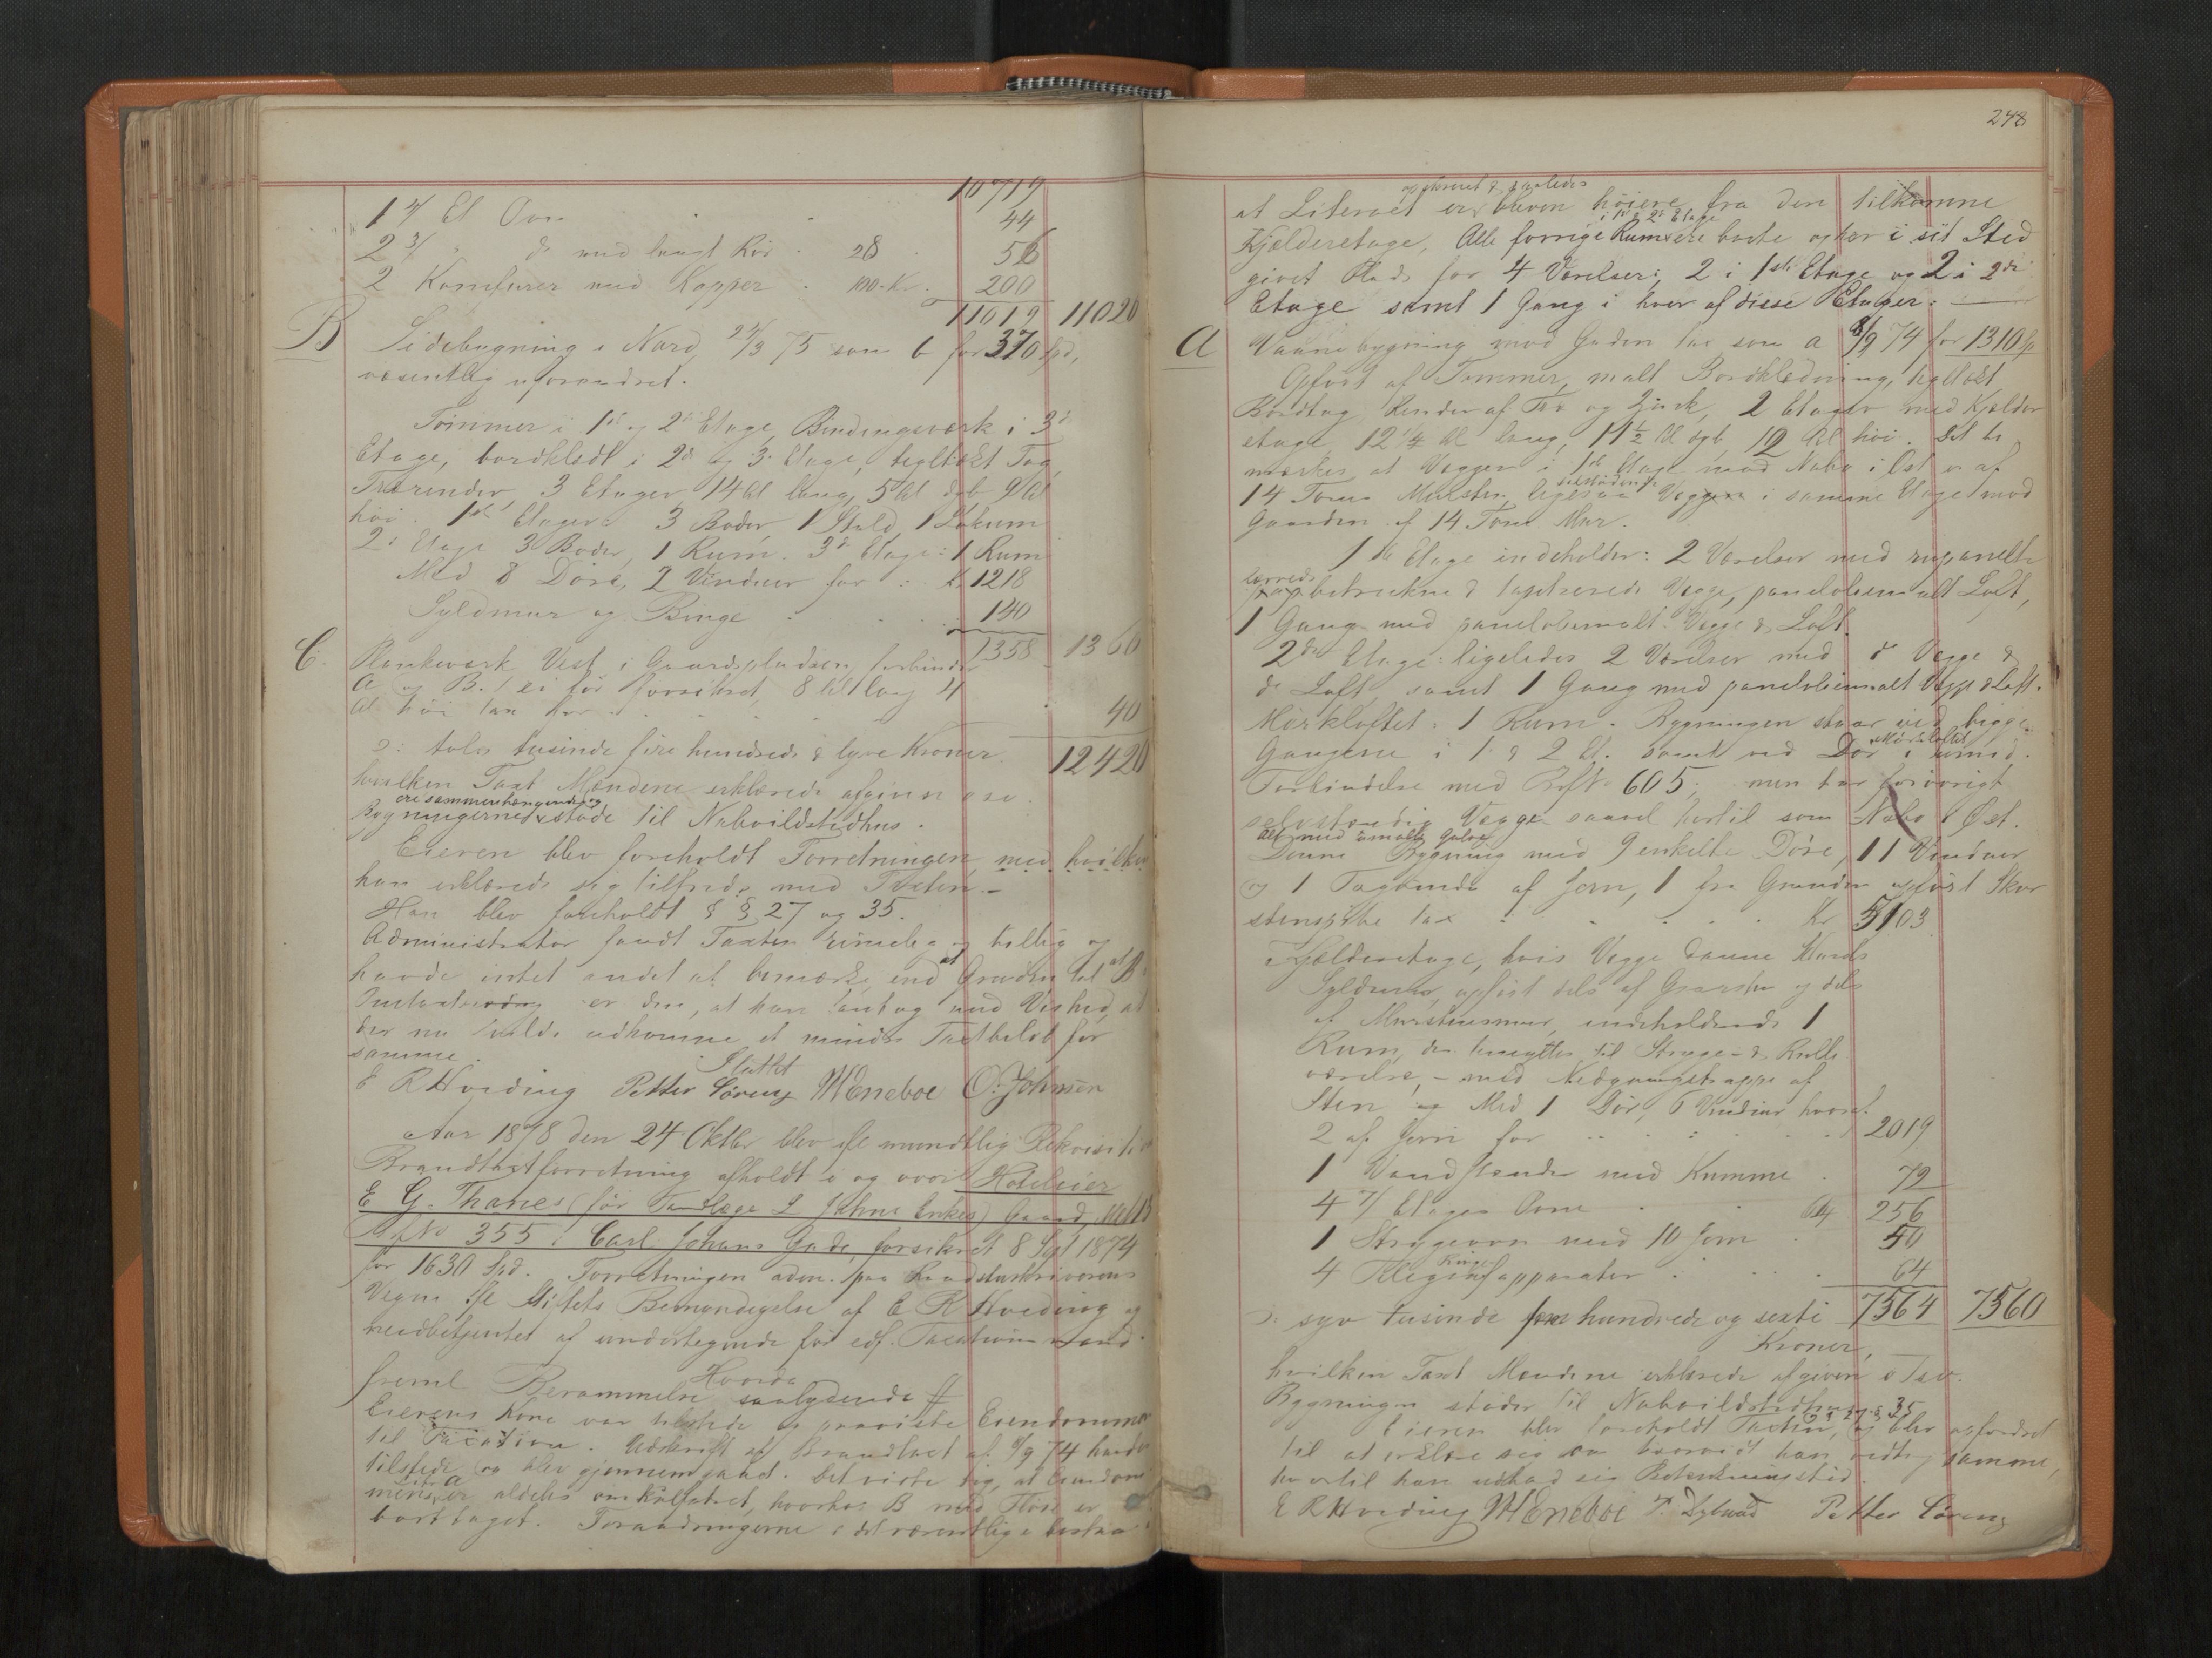 10719
1 4/ Et Ovn 44
2 3/ " do med langt Rør 28 56
2 Komfurer med Kapper 100 Kr. 200
11019 11020
B Sidebygning i Nord, 24/3 75 som b for 370 Spd,
væsentlig uforandret.
Tømmer i 1ste og 2den Etage, Bindingsværk i 3die
Etage, bordklædt i 2d og 3d Etage, tegltækt Tag,
Trærender, 3 Etager 14 Al lang, 5 Al dyb 9 Al
høi. 1ste Etage: 3 Boder, 1 Stald, 1 Lokum
2d Etage 3 Boder, 1 Rum. 3die Etage: 1 Rum
Med 8 Døre, 2 Vinduer for Kr 1218
Syldmur og Binge 140
1358 1360
C. Plankeværk Vest i Gaardspladsen, forbinder
A og B. / ei før forsikret, 8 Al lang 4
Al. høi tax for 40
12420
ɔ: tolv tusinde fire hundrede & tyve Kroner.
hvilken Taxt Mændene erklærede afgiven o s v.
Bygningerne ere sammenhængende og støde til Naboildstedhus.
Eieren blev foreholdt Forretningen, med hvilken
han erklærede sig tilfreds med Taxten.-
Han blev foreholdt § § 27 og 35.
Administrator fandt Taxten rimelig og billig og
havde intet andet at bemærke, end at Grunden til at B
er den, at han antog med Vished, at
der nu vilde udkomme et mindre Taxtbeløb for
samme.
Sluttet
E R Hveding Petter Søreng M Eneboe O. Johnsen
Aar 1878 den 24 Oktbr blev ifl mundtlig Rekvisition
Brandtaxtforretning afholdt i og over Hoteleier
E G. Thanes (før Tandlæge L Jahns Enkes) Gaard, Mtl B
Brf No 355 i Carl Johans Gade, forsikret 8 Spt 1874
for 1630 Spd. Forretningen adm. paa Raadstuskriverens
Vegne ifl Stiftets Bemyndigelse af E R Hveding og
medbetjentes af undertegnede før edf. Taxationsmænd.
freml Berammelse saalydende #
Hvorda
Eierens Kone var tilstede og paaviste Eiendommen
til Taxation. Udskrift af Brandtaxt af 8/9 74 havdes
tilstede og blev gjennemgaaet. Det viste sig, at Eiendom-
mens A er aldeles omkalfatret, hvorhos B med Flere er
borttaget. Forandringerne i det væsentlige bestaa i
248
at Literaet er opskruet & saaledes bleven høiere fra den tilkomne
Kjælderetage, Alle forrige Rum i 1ste & 2den Etage ere borte og her i sit Sted
givet Plads for 4 Værelser, 2 i 1ste Etage og 2 i 2den
Etage samt 1 Gang i hver af disse Etager.
A Vaanebygning mod Gaden tax som a 8/9 74 for 1310 Sp
Opført af Tømmer, malt Bordklædning, tegltækt
Bordtag, Render af Træ og Zink, 2 Etager med Kjælder
etage, 12 1/4 Al lang, 11 1/2 Al dyb, 10 Al høi. Det be-
mærkes, at Væggen i 1ste Etage mod Nabo i Øst er af
14 Toms Mursten, ligesaa Væggen i samme Etage mod
Gaarden af 14 Toms Mur.
1ste Etage indeholder: 2 Værelser med
lærreds betrukne & tapetserede Vægge, paneloliemalt Loft,
1 Gang med paneloliemalt Vægge & Loft.
2den Etage: ligeledes 2 Værelser med do Vægge &
do Loft, samt 1 Gang med paneloliemalt Vægge & Loft.
Mørkloftet: 1 Rum. Bygningen staar ved begge
Gangene i 1 & 2 Et. samt ved Dør i mørkloftet
Forbindelse med Brf No 605; men har forøvrigt
selvstændig Vægge saavel hertil som Nabo i Øst.
Alt med umalte Gulve
Denne Bygning med 9 enkelte Døre, 11 Vinduer
og 1 Tagvindu af Jern, 1 fra Grunden opført Skor
stenspibe tax Kr 5103
Kjælderetage, hvis Vægge danne Husets
Syldmur, opført dels af Graasten og dels
af Murstensmur, indeholdende 1
Rum, der benyttes til Stryge- & Rulle
værelse, - med Nedgangstrappe af
Sten og Med 1 Dør, 6 Vinduer hvoraf
2 af Jern for 2019
1 Vandstander med Kumme 72
4 4/ Etages Ovne 64 256
1 Strygeovn med 10 Jern 50
4 Ringeapparater 64
7564 7560
ɔ: syv tusinde fem hundrede og sexti
Kroner,
hvilken Taxt Mændene erklærede afgiven o s v.
Bygningen støder til Naboildstedhus.
Eieren blev foreholdt Taxten, § 27 & 35 og blev opfordret
til at erklære sig om hvorvidt han vedtog samme,
hvortil han udbad sig Betænkningstid.
E R Hveding M Eneboe P. Dybvad Petter Søreng